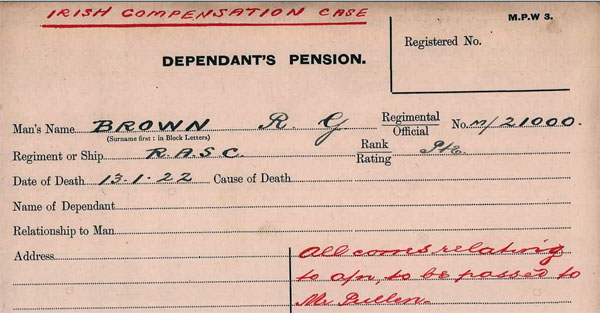 IRISH COMPENSATION CASE
M.P.W 3.
Registered No.
DEPENDANT'S PENSION.
Man's Name BROWN R G Regimental No. M/21000.
(Surname first: in Block Letters) Official
Regiment or Ship R.A.S.C. Rank Pte
Rating
Date of Death 13.1.22 Cause of Death
Name of Dependant
Relationship to Man
Address
All corres relating
to a/n, to be passed to
Mr Pullen.